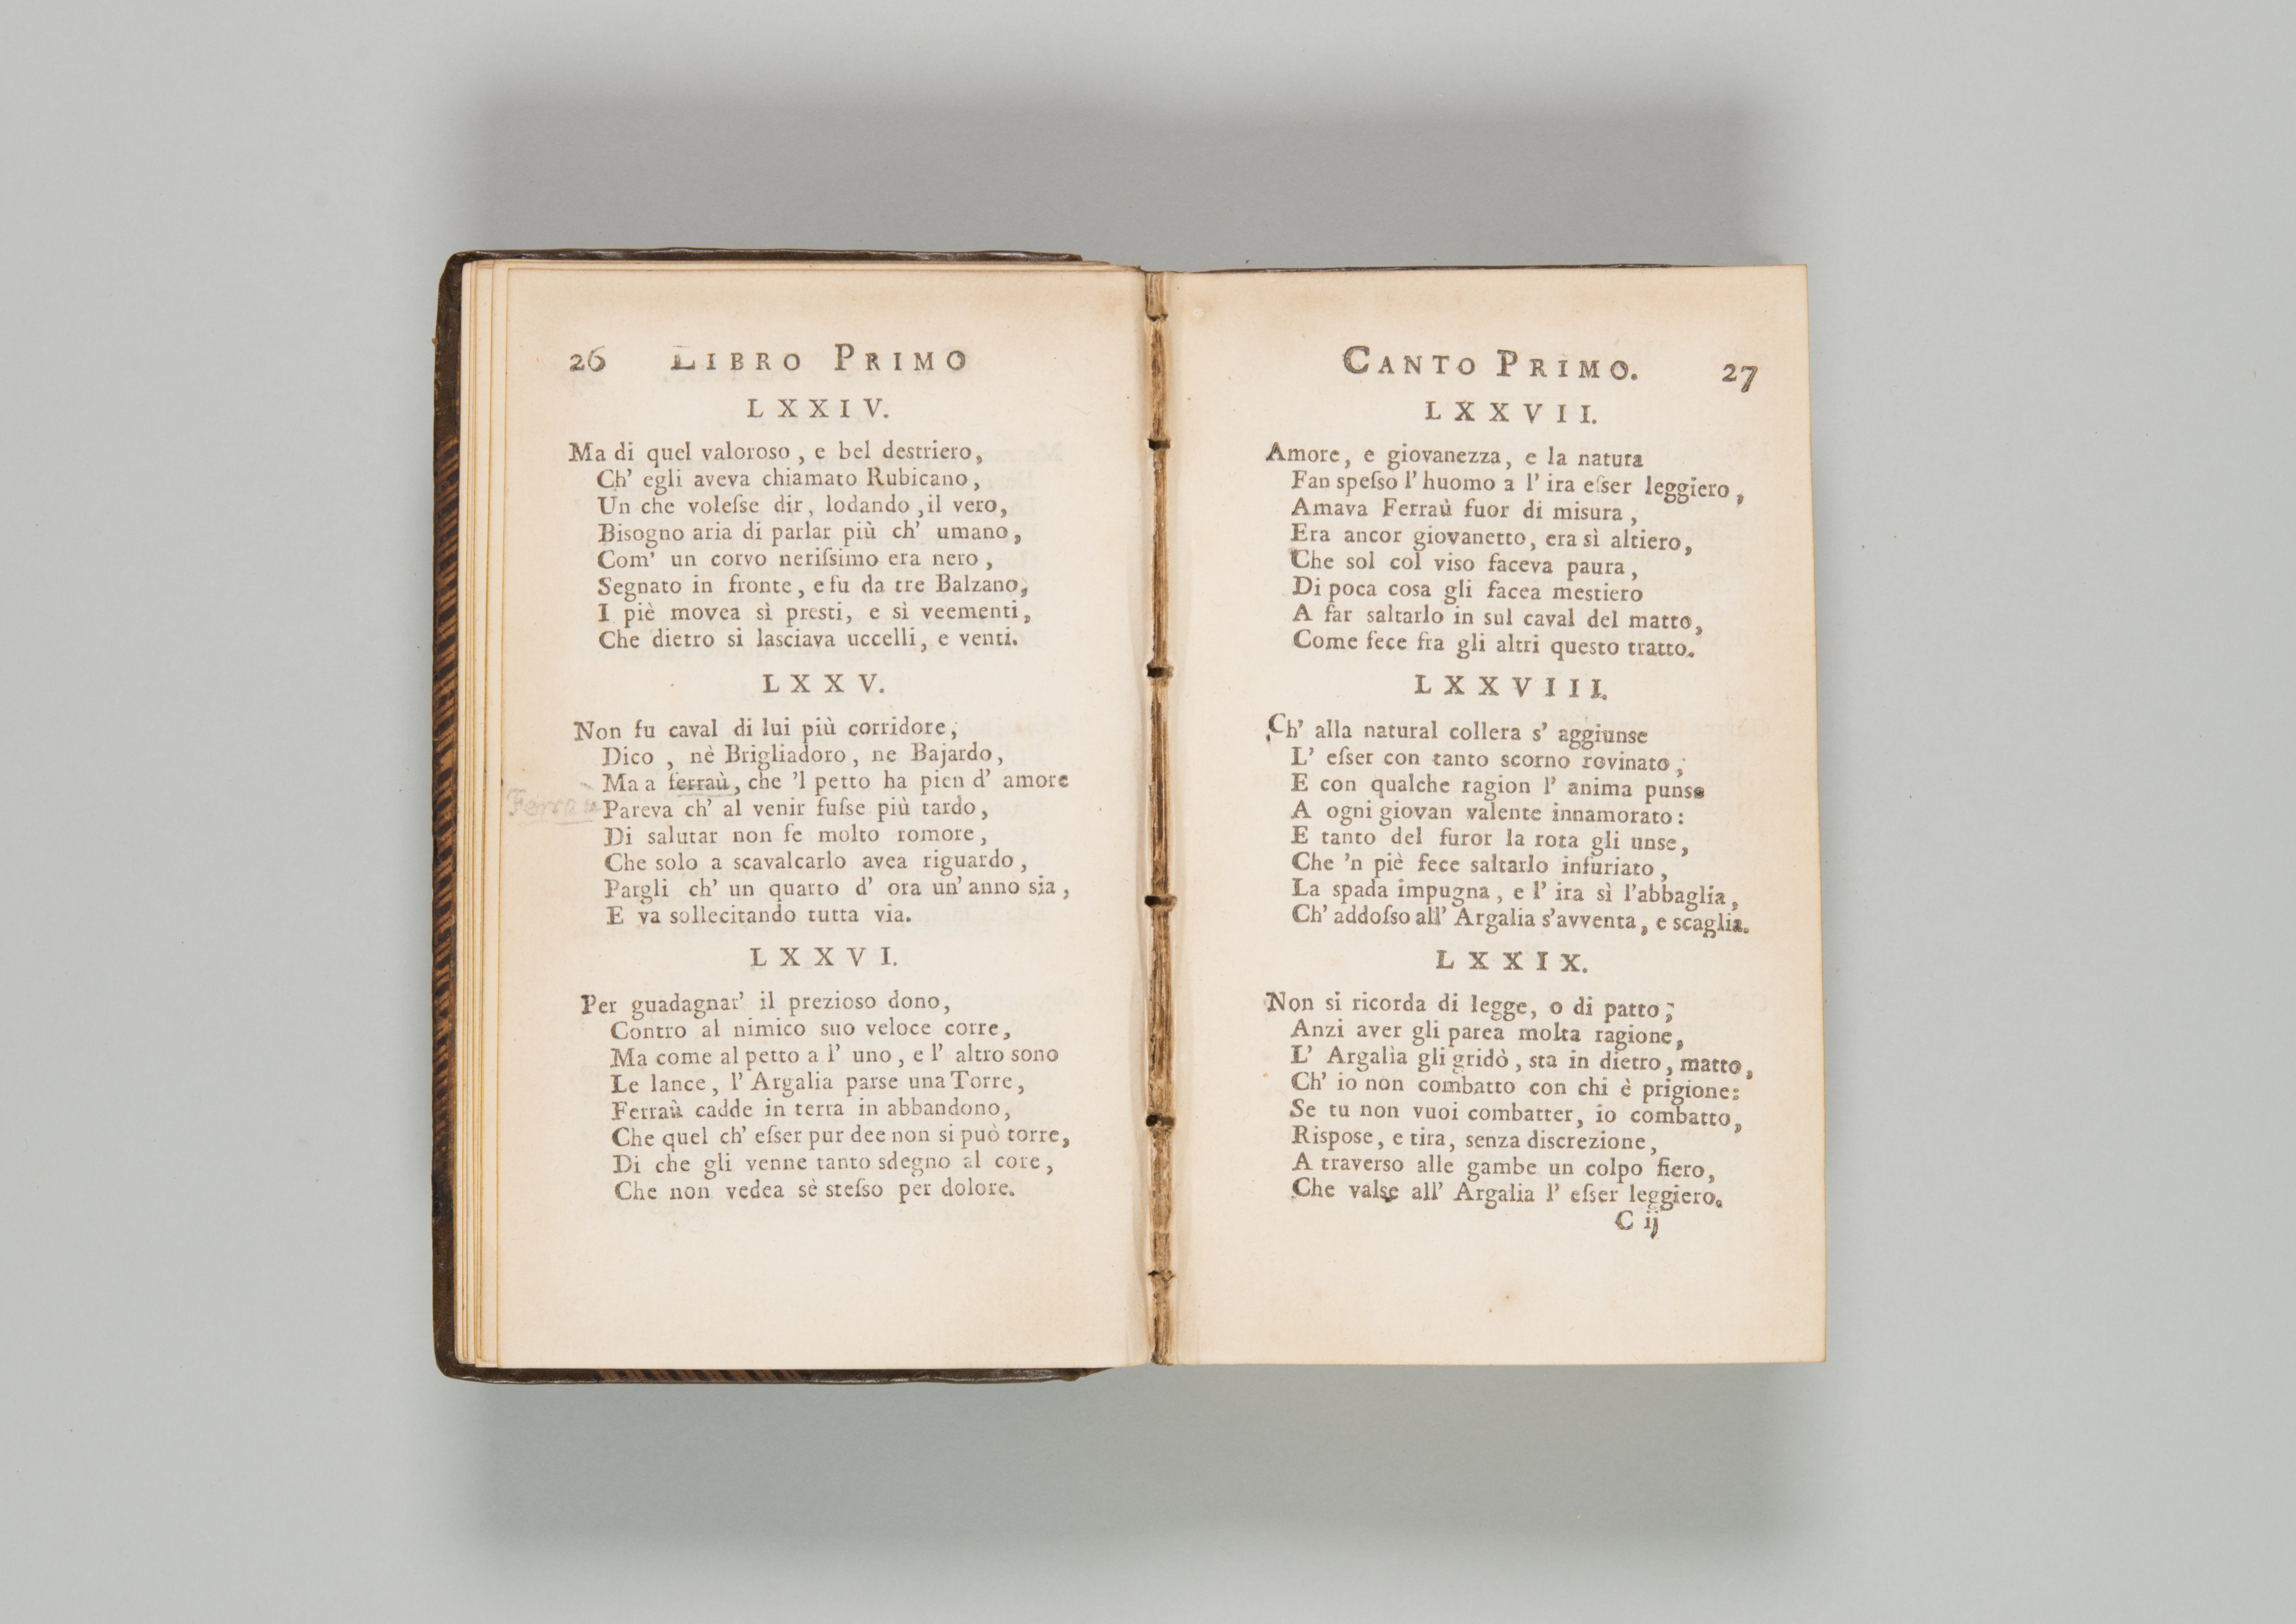 26 LIBRO PRIMO
LXXIV.
Ma di quel valoroso, e bel destriero,
Ch' egli aveva chiamato Rubicano,
Un che voleſse dir, lodando, il vero,
Bisogno aria di parlar più ch' umano,
Com' un corvo neriſsimo era nero,
Segnato in fronte, e fu da tre Balzano,
I piè movea sì presti, e sì veementi,
Che dietro si lasciava uccelli, e venti.
LXXV.
Non fu caval di lui più corridore,
Dico, nè Brigliadoro, ne Bajardo,
Ma a ferraù, che 'l petto ha pien d' amore
Ferraù
Pareva ch' al venir fuſse più tardo,
Di salutar non fe molto romore,
Che solo a scavalcarlo avea riguardo,
Pargli ch' un quarto d' ora un' anno sia,
E va sollecitando tutta via.
LXXVI.
Per guadagnar' il prezioso dono,
Contro al nimico suo veloce corre,
Ma come al petto a l' uno, e l' altro sono
Le lance, l' Argalia parse una Torre,
Ferraù cadde in terra in abbandono,
Che quel ch' eſser pur dee non si può torre,
Di che gli venne tanto sdegno al core,
Che non vedea sè steſso per dolore.
CANTO PRIMO. 27
LXXVII.
Amore, e giovanezza, e la natura
Fan speſso l' huomo a l' ira eſser leggiero,
Amava Ferraù fuor di misura,
Era ancor giovanetto, era sì altiero,
Che sol col viso faceva paura,
Di poca cosa gli facea mestiero
A far saltarlo in sul caval del matto,
Come fece fra gli altri questo tratto.
LXXVIII.
Ch' alla natural collera s' aggiunse
L' eſser con tanto scorno rovinato;
E con qualche ragion l' anima punse
A ogni giovan valente innamorato:
E tanto del furor la rota gli unse,
Che 'n piè fece saltarlo infuriato,
La spada impugna, e l' ira sì l'abbaglia,
Ch' addoſso all' Argalia s'avventa, e scaglia.
LXXIX.
Non si ricorda di legge, o di patto;
Anzi aver gli parea molta ragione,
L' Argalia gli gridò, sta in dietro, matto,
Ch' io non combatto con chi è prigione:
Se tu non vuoi combatter, io combatto,
Rispose, e tira, senza discrezione,
A traverso alle gambe un colpo fiero,
Che valse all' Argalia l' eſser leggiero.
C ij